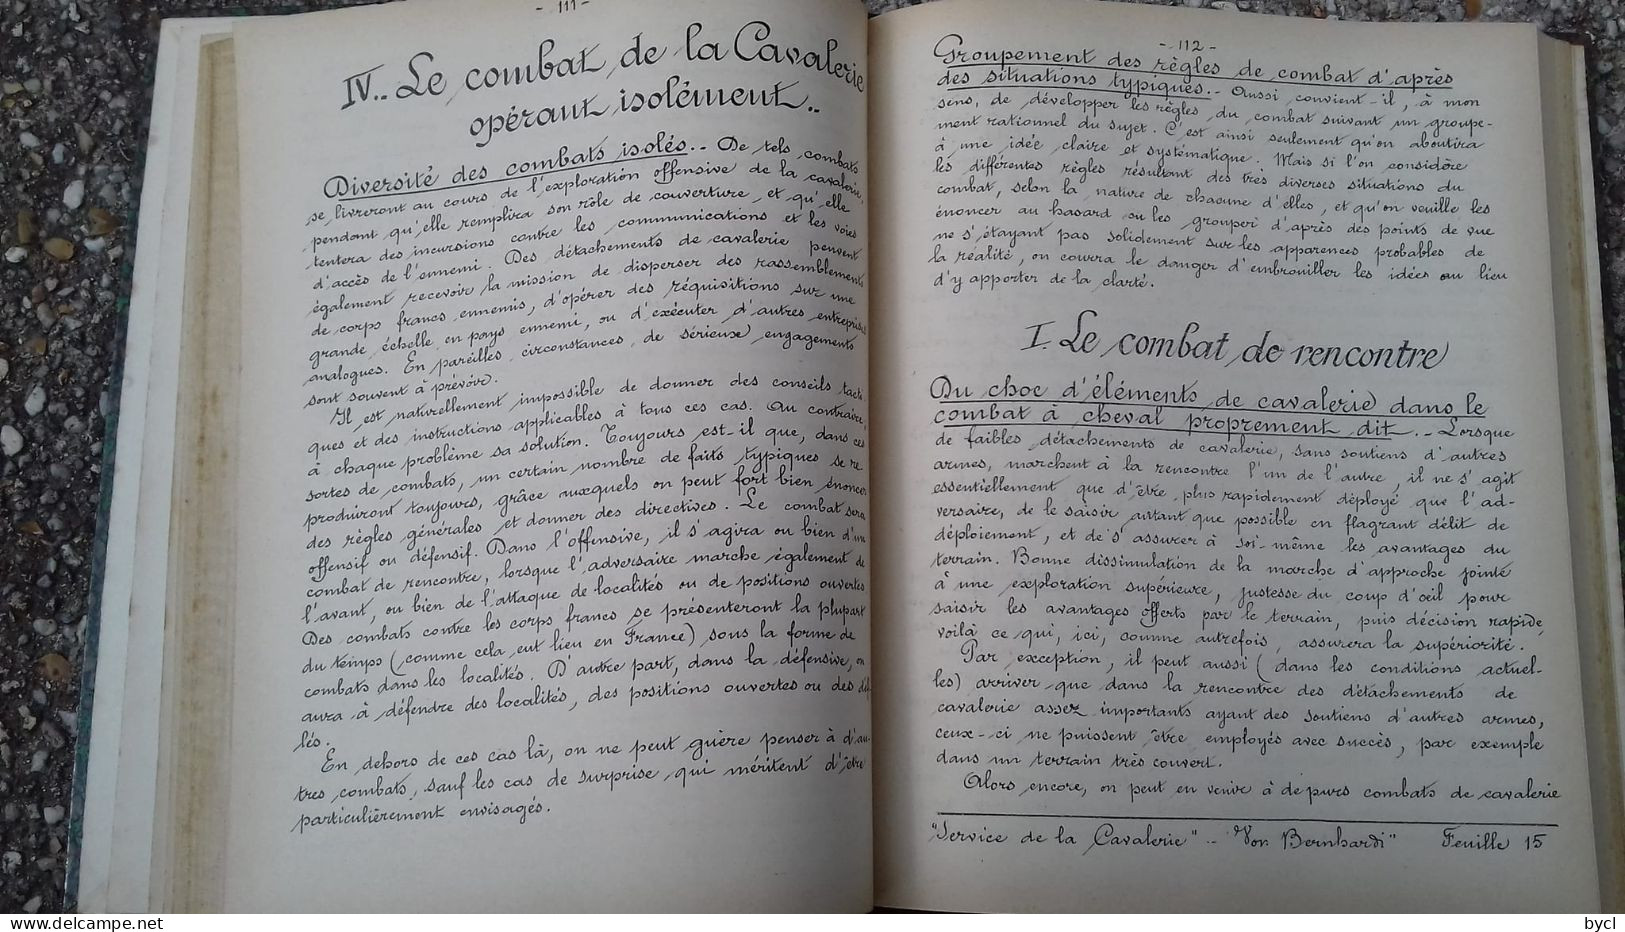 - 111 -
IV.. Le combat de la Cavalerie
opérant isolément..
Diversité des combats isolés.. De tels combats
se livreront au cours de l'exploration offensive de la cavalerie,
pendant qu'elle remplira son rôle de couverture, et qu'elle
tentera des incursions contre les communications et les voies
d'accès de l'ennemi. Des détachements de cavalerie peuvent
également recevoir la mission de disperser des rassemblements
de corps francs ennemis, d'opérer des réquisitions sur une
grande échelle en pays ennemi, ou d'exécuter d'autres entreprises
analogues. En pareilles circonstances, de sérieux engagements
sont souvent à prévoir.
Il est naturellement impossible de donner des conseils tacti-
ques et des instructions applicables à tous ces cas. Au contraire,
à chaque problème sa solution. Toujours est-il que, dans ces
sortes de combats, un certain nombre de faits typiques se re-
produiront toujours, grâce auxquels on peut fort bien énoncer
des règles générales et donner des directives. Le combat sera
offensif ou défensif. Dans l'offensive, il s'agira ou bien d'un
combat de rencontre, lorsque l'adversaire marche également de
l'avant, ou bien de l'attaque de localités ou de positions ouvertes
Des combats contre les corps francs se présenteront la plupart
du temps (comme cela eut lieu en France) sous la forme de
combats dans les localités. D'autre part, dans la défensive, on
aura à défendre des localités, des positions ouvertes ou des défi-
lés.
En dehors de ces cas là, on ne peut guère penser à d'au-
tres combats, sauf les cas de surprise qui méritent d'être
particulièrement envisagés.
- 112 -
Groupement des règles de combat d'après
des situations typiques.. Aussi convient-il, à mon
sens, de développer les règles du combat suivant un groupe-
ment rationnel du sujet. C'est ainsi seulement qu'on aboutira
à une idée claire et systématique. Mais si l'on considère
les différentes règles résultant des très diverses situations du
combat, selon la nature de chacune d'elles, et qu'on veuille les
énoncer au hasard ou les grouper d'après des points de vue
ne s'étayant pas solidement sur les apparences probables de
la réalité, on courra le danger d'embrouiller les idées au lieu
d'y apporter de la clarté.
I. Le combat de rencontre
Du choc d'éléments de cavalerie dans le
combat à cheval proprement dit.. Lorsque
de faibles détachements de cavalerie, sans soutiens d'autres
armes, marchent à la rencontre l'un de l'autre, il ne s'agit
essentiellement que d'être plus rapidement déployé que l'ad-
versaire, de le saisir autant que possible en flagrant délit de
déploiement, et de s'assurer à soi-même les avantages du
terrain. Bonne dissimulation de la marche d'approche jointe
à une exploration supérieure, justesse du coup d'œil pour
saisir les avantages offerts par le terrain, puis décision rapide,
voilà ce qui, ici, comme autrefois, assurera la supériorité.
Par exception, il peut aussi (dans les conditions actuel-
les) arriver que dans la rencontre des détachements de
cavalerie assez importants ayant des soutiens d'autres armes,
ceux-ci ne puissent être employés avec succès, par exemple
dans un terrain très couvert.
Alors encore, on peut en venir à de purs combats de cavalerie
"Service de la Cavalerie" .. "Von Bernhardi" Feuille 15
delcampe.net
bycl